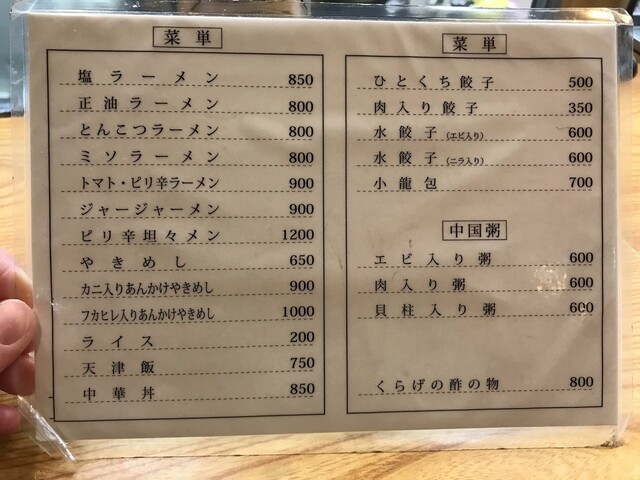 菜単
塩ラーメン 850
正油ラーメン 800
とんこつラーメン 800
ミソラーメン 800
トマト・ピリ辛ラーメン 900
ジャージャーメン 900
ピリ辛坦々メン 1200
やきめし 650
カニ入りあんかけやきめし 900
フカヒレ入りあんかけやきめし 1000
ライス 200
天津飯 750
中華丼 850
菜単
ひとくち餃子 500
肉入り餃子 350
水餃子(エビ入り) 600
水餃子(ニラ入り) 600
小龍包 700
中国粥
エビ入り粥 600
肉入り粥 600
貝柱入り粥 600
くらげの酢の物 800